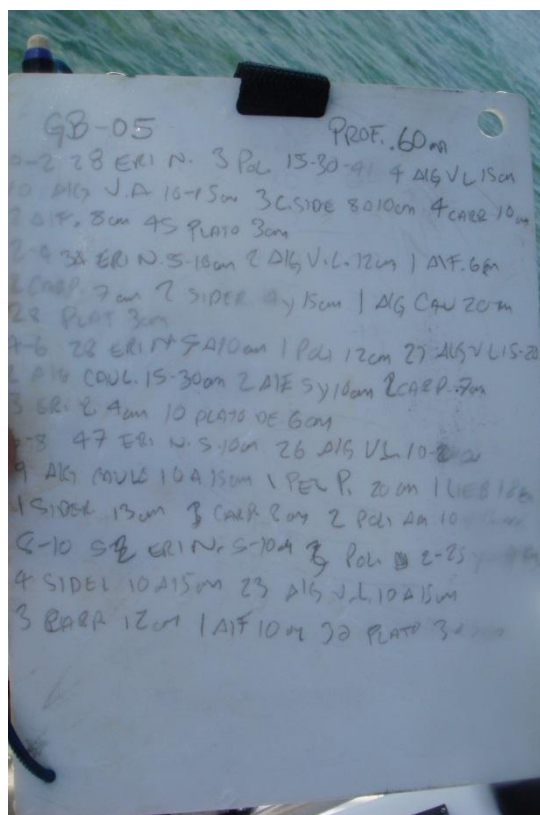 GB-05 PROF. 60m
0-2 28 ERI N. 3 POL 15-30- 4 AlG V L 15cm
10 AlG V.A 10-15cm 3 C.SIDE 8 a 10cm 4 CARP 10cm
2 A1F. 8cm 45 PLATO 3cm
2-4 34 ERI N. 5-10cm 2 AlG V.L. 12cm 1 A1F. 6cm
2 CARP. 7cm 2 SIDER 4 y 15cm 1 AlG CAU 20cm
28 PLAT 3cm
4-6 28 ERI N 5 A 10cm 1 POLI 12cm 27 AlG V L 15-20
2 AlG CAUL. 15-30cm 2 A1F 5 y 10cm 2 CARP. 7cm
ERI 2 4cm 10 PLATO DE 6cm
6-8 47 ERI N. 5-10cm 26 AlG V L 10-
9 AlG CAULE 10 A 15cm 1 PEZ P. 20cm 1
1 SIDER 13cm 3 CARP. 8cm 2 POLI 10
8-10 ERI N. 5-10cm 3 POLI 2-25
4 SIDEL 10 A 15cm 23 AlG V.L. 10 A 15cm
3 CARP 12cm 1 A1F 10cm 32 PLATO 3